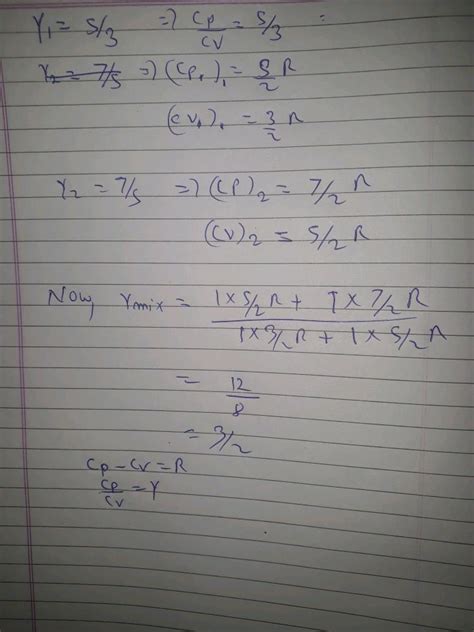 γ₁ = 5/3 => Cp/Cv = 5/3
γ₂ = 7/5 => (Cp₁)₁ = 5/2 R
(Cv₁)₁ = 3/2 R
γ₂ = 7/5 => (Cp)₂ = 7/2 R
(Cv)₂ = 5/2 R
Now γmix = 1×5/2R + 1×7/2R
1×3/2R + 1×5/2R
= 12/8
= 3/2
Cp - Cv = R
Cp/Cv = γ